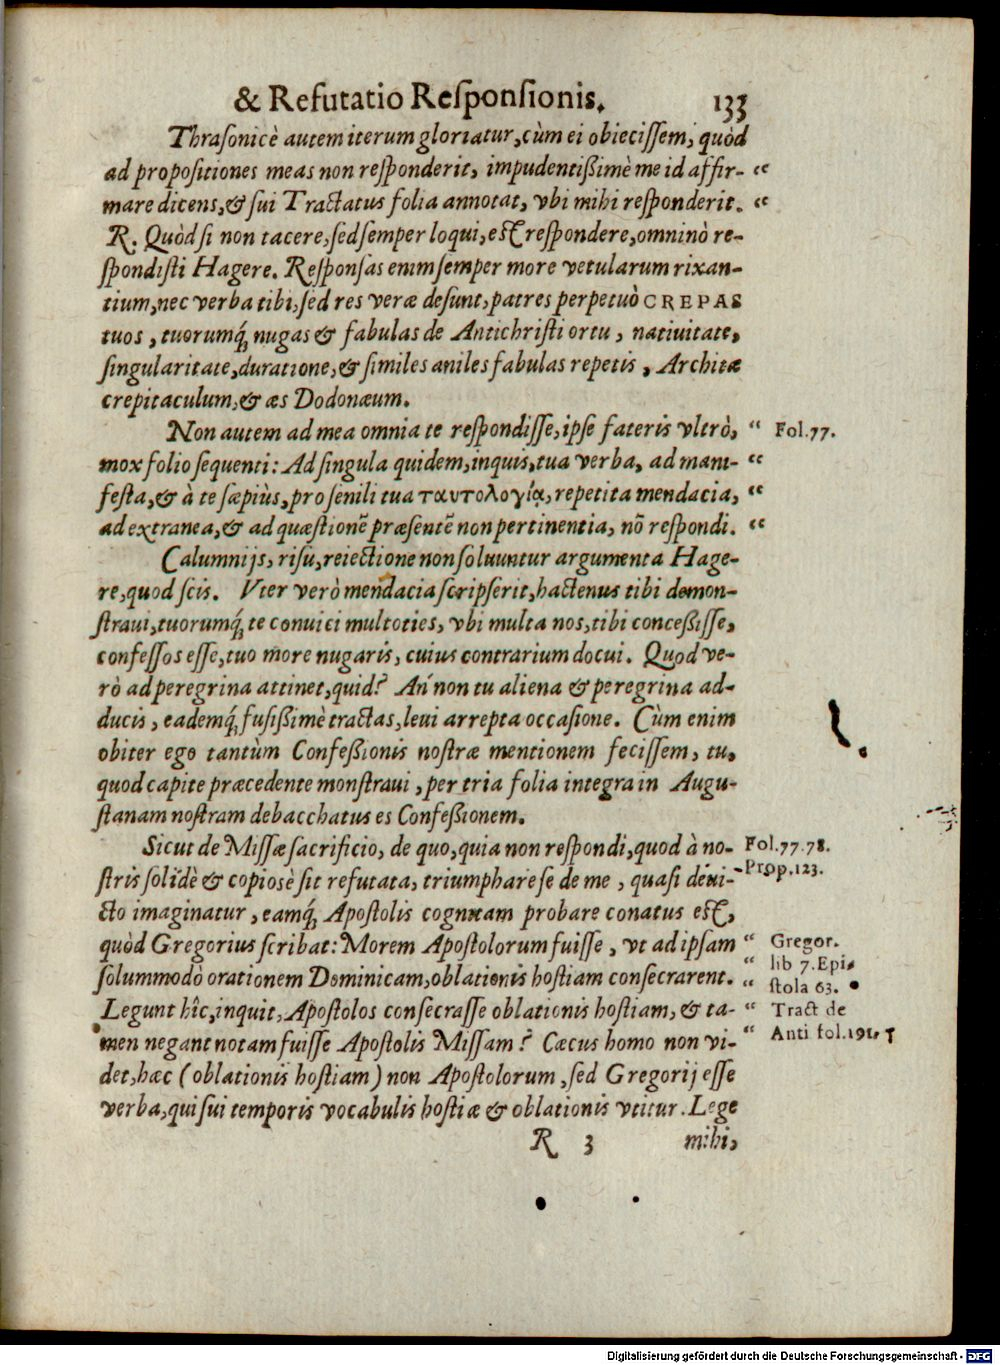 & Refutatio Responsionis. 133
Thrasonicè autem iterum gloriatur, cùm ei obiecissem, quòd
ad propositiones meas non responderit, impudentißimè me id affir- “
mare dicens, & sui Tractatus folia annotat, vbi mihi responderit. “
R. Quòd si non tacere, sed semper loqui, est respondere, omninò re-
spondisti Hagere. Responsas enim semper more vetularum rixan-
tium, nec verba tibi, sed res veræ desunt, patres perpetuò CREPAS
tuos, tuorumq́; nugas & fabulas de Antichristi ortu, natiuitate,
singularitate, duratione, & similes aniles fabulas repetis, Architæ
crepitaculum, & æs Dodonæum.
Non autem ad mea omnia te respondisse, ipse fateris vltrò, “ Fol.77.
mox folio sequenti: Ad singula quidem, inquis, tua verba, ad mani- “
festa, & à te sæpiùs, pro senili tua ταυτολογίᾳ, repetita mendacia, “
ad extranea, & ad quæstionē præsentē non pertinentia, nō respondi. “
Calumnijs, risu, reiectione non soluuntur argumenta Hage-
re, quod scis. Vter verò mendacia scripserit, hactenus tibi demon-
straui, tuorumq́; te conuici multoties, vbi multa nos, tibi conceßisse,
confessos esse, tuo more nugaris, cuius contrarium docui. Quod ve-
rò ad peregrina attinet, quid? Ań non tu aliena & peregrina ad-
ducis, eademq́; fusißimè tractas, leui arrepta occasione. Cùm enim
obiter ego tantùm Confeßionis nostræ mentionem fecissem, tu,
quod capite præcedente monstraui, per tria folia integra in Augu-
stanam nostram debacchatus es Confeßionem.
Sicut de Missæ sacrificio, de quo, quia non respondi, quod à no- Fol.77.78.
stris solidè & copiosè sit refutata, triumphare se de me, quasi deui- Prop.123.
cto imaginatur, eamq́; Apostolis cognitam probare conatus est,
quòd Gregorius scribat: Morem Apostolorum fuisse, vt ad ipsam “ Gregor.
solummodò orationem Dominicam, oblationis hostiam consecrarent. “ lib 7. Epi-
“ stola 63.
Legunt hîc, inquit, Apostolos consecrasse oblationis hostiam, & ta- “ Tract de
men negant notam fuisse Apostolis Missam? Cæcus homo non vi- “ Anti fol.191.
det, hæc (oblationis hostiam) non Apostolorum, sed Gregorij esse
verba, qui sui temporis vocabulis hostiæ & oblationis vtitur. Lege
R 3 mihi,
Digitalisierung gefördert durch die Deutsche Forschungsgemeinschaft - DFG